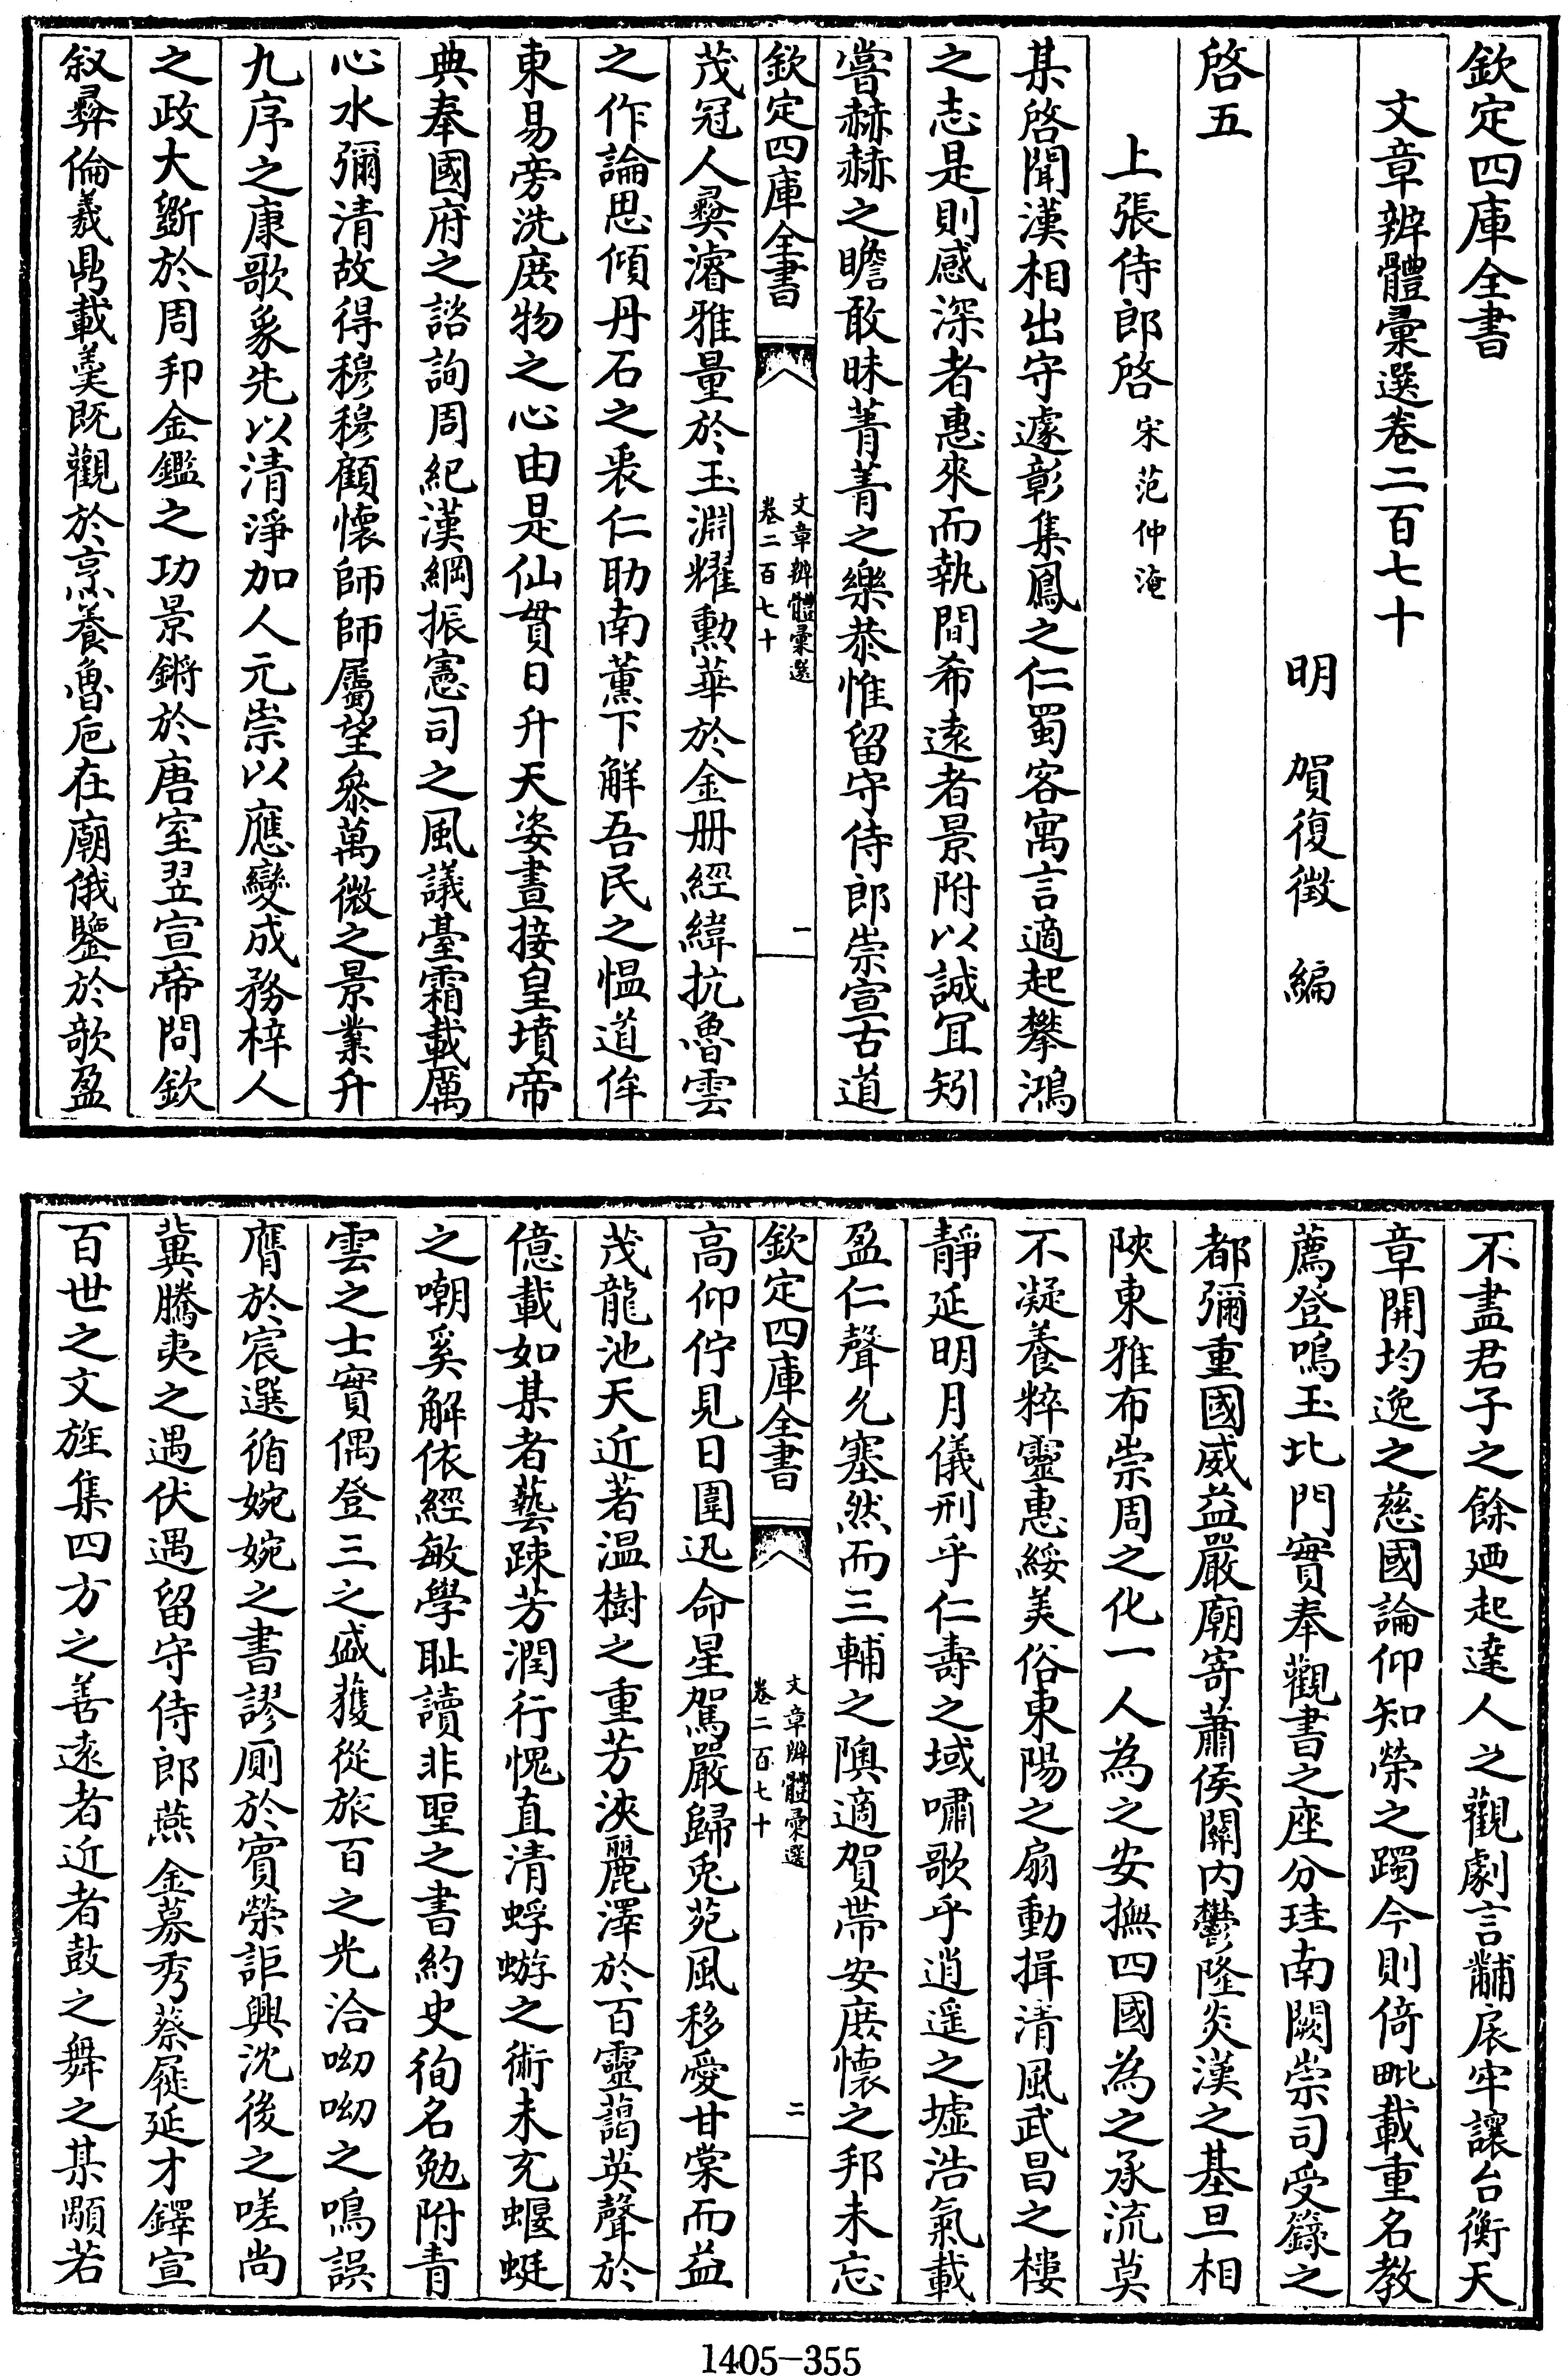 欽定四庫全書
文章辨體彙選卷二百七十
明 賀復徵 編
啓五
上張侍郎啓 宋范仲淹
某啓聞漢相出守遽彰集鳳之仁蜀客寓言適起攀鴻
之志是則感深者惠來而執間希遠者景附以誠宜矧
嘗赫赫之瞻敢昧菁菁之樂恭惟留守侍郎崇宣古道
欽定四庫全書
文章辨體彙選
卷二百七十
一
茂冠人彛濬雅量於玉淵耀勳華於金册經緯抗魯雲
之作論思傾丹石之裘仁助南薰下解吾民之愠道侔
東易旁洗庶物之心由是仙貫日升天姿晝接皇墳帝
典奉國府之諮詢周紀漢綱振憲司之風議臺霜載厲
心水彌清故得穆穆顧懷師師屬望叅萬微之景業升
九序之康歌象先以清淨加人元崇以應變成務梓人
之政大斵於周邦金鑑之功景鏘於唐室翌宣帝問欽
叙彛倫羲鼎載羹既觀於烹養魯巵在廟俄鑒於欹盈
不盡君子之餘廼起達人之觀劇言黼扆牢讓台衡天
章開均逸之慈國論仰知榮之躅今則倚毗載重名教
薦登鳴玉北門實奉觀書之座分珪南闕崇司受籙之
都彌重國威益嚴廟寄蕭侯關内鬱隆炎漢之基旦相
陜東雅布崇周之化一人為之安撫四國為之承流莫
不凝養粹靈惠綏美俗東陽之扇動揖清風武昌之樓
靜延明月儀刑乎仁壽之域嘯歌乎逍遥之墟浩氣載
盈仁聲允塞然而三輔之隩適賀帶安庶懷之邦未忘
欽定四庫全書
文章辨體彙選
卷二百七十
二
高仰佇見日圍迅命星駕嚴歸兎苑風移愛甘棠而益
茂龍池天近著温樹之重芳浹麗澤於百靈藹英聲於
億載如某者藝踈芳潤行愧直清蜉蝣之術未充蝘蜓
之嘲奚解依經敏學耻讀非聖之書約史徇名勉附青
雲之士實偶登三之盛獲從旅百之光洽呦呦之鳴誤
膺於宸選循婉婉之書謬厠於賓榮詎興沈後之嗟尚
冀騰夷之遇伏遇留守侍郎燕金募秀蔡屣延才鐸宣
百世之文旌集四方之善遠者近者鼓之舞之某顒若
1405-355